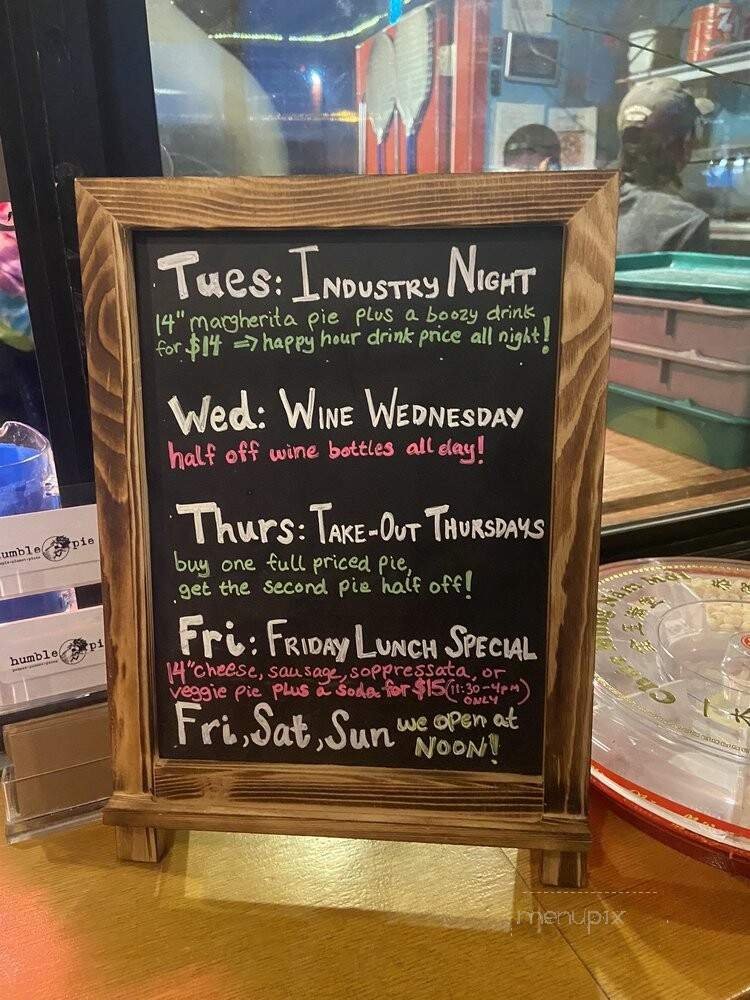 Tues: Industry Night
14" margherita pie plus a boozy drink
for $14 => happy hour drink price all night!
Wed: Wine Wednesday
half off wine bottles all day!
Thurs: Take-Out Thursdays
buy one full priced pie,
get the second pie half off!
Fri: Friday Lunch Special
14" cheese, sausage, soppressata, or
veggie pie plus a soda for $15 (11:30-4pm)
ONLY
Fri, Sat, Sun we open at
NOON!
humble pie
humble pi
menupix